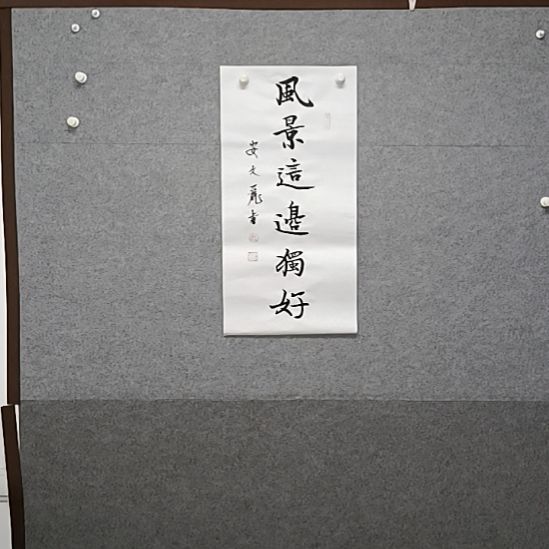 風景這邊獨好
安文麗書